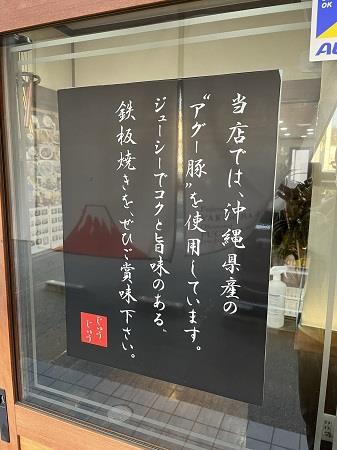 当店では、沖縄県産の
"アグー豚"を使用しています。
ジューシーでコクと旨味のある、
鉄板焼きを、ぜひご賞味下さい。
じゅう
じゅう
OK